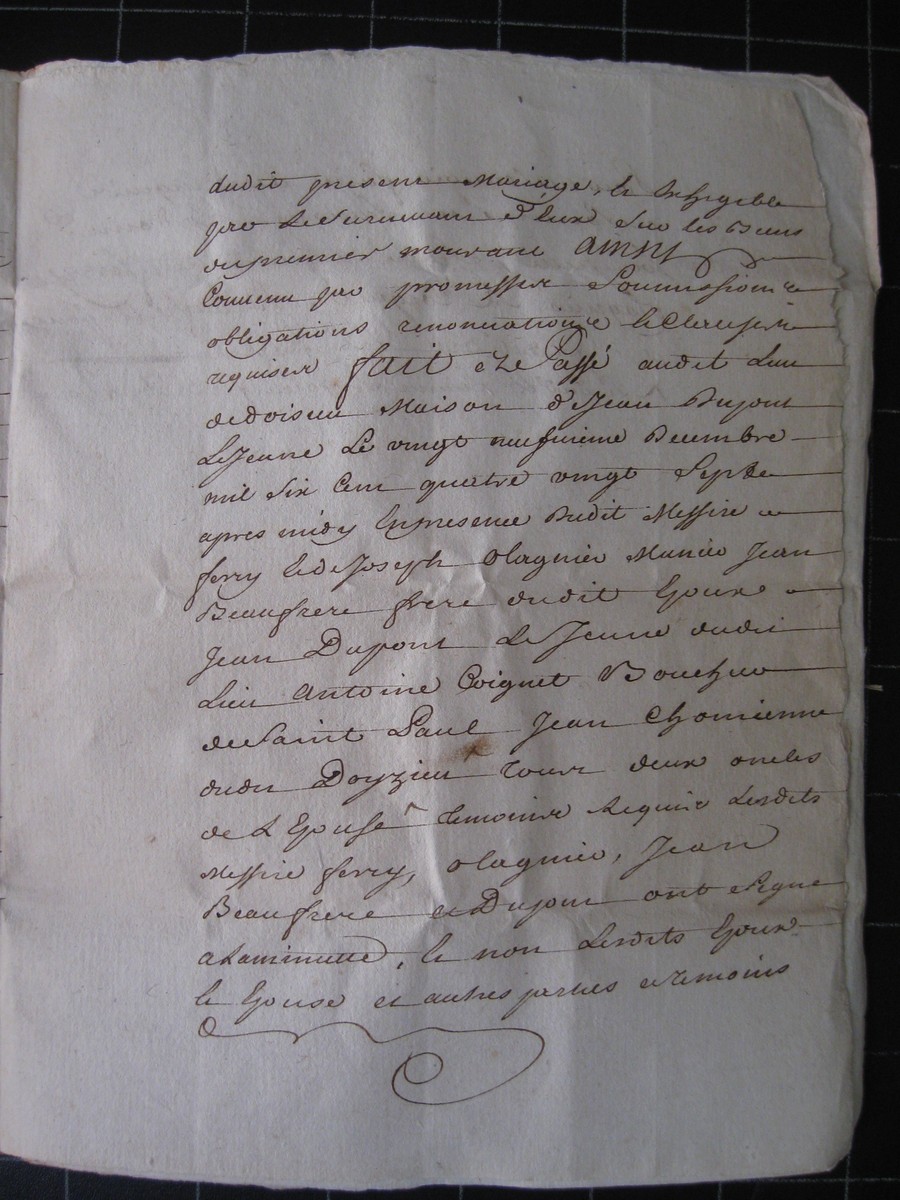 dudit present Mariage, le Exhigible
par le Survivant d'Eux Sur les Biens
du premier mourant Ainsy
Convenu par promesses Soumissions
obligations renonciations le Clauses
requises fait et Passé audit Lieu
de doisieu Maison d'Jean Dupont
LeJeune Le vingt neufvieme Decembre
mil Six Cent quatre vingt Sept
apres midy En presence Dudit Messire
ferry de Joseph Olagnier Munier Jean
Beaufrere frere dudit Epoux
Jean Dupont LeJeune dudit
Lieu Antoine Coignet Boucher
de Saint Paul Jean Chomienne
dudit Doyzieu tous deux oncles
de L Epouse temoins Requis Lesdits
Messire ferry, olagnier, Jean
Beaufrere et Dupont ont Signe
a La minutte, le non Lesdits Epoux
le Epouse et autres parties et temoins